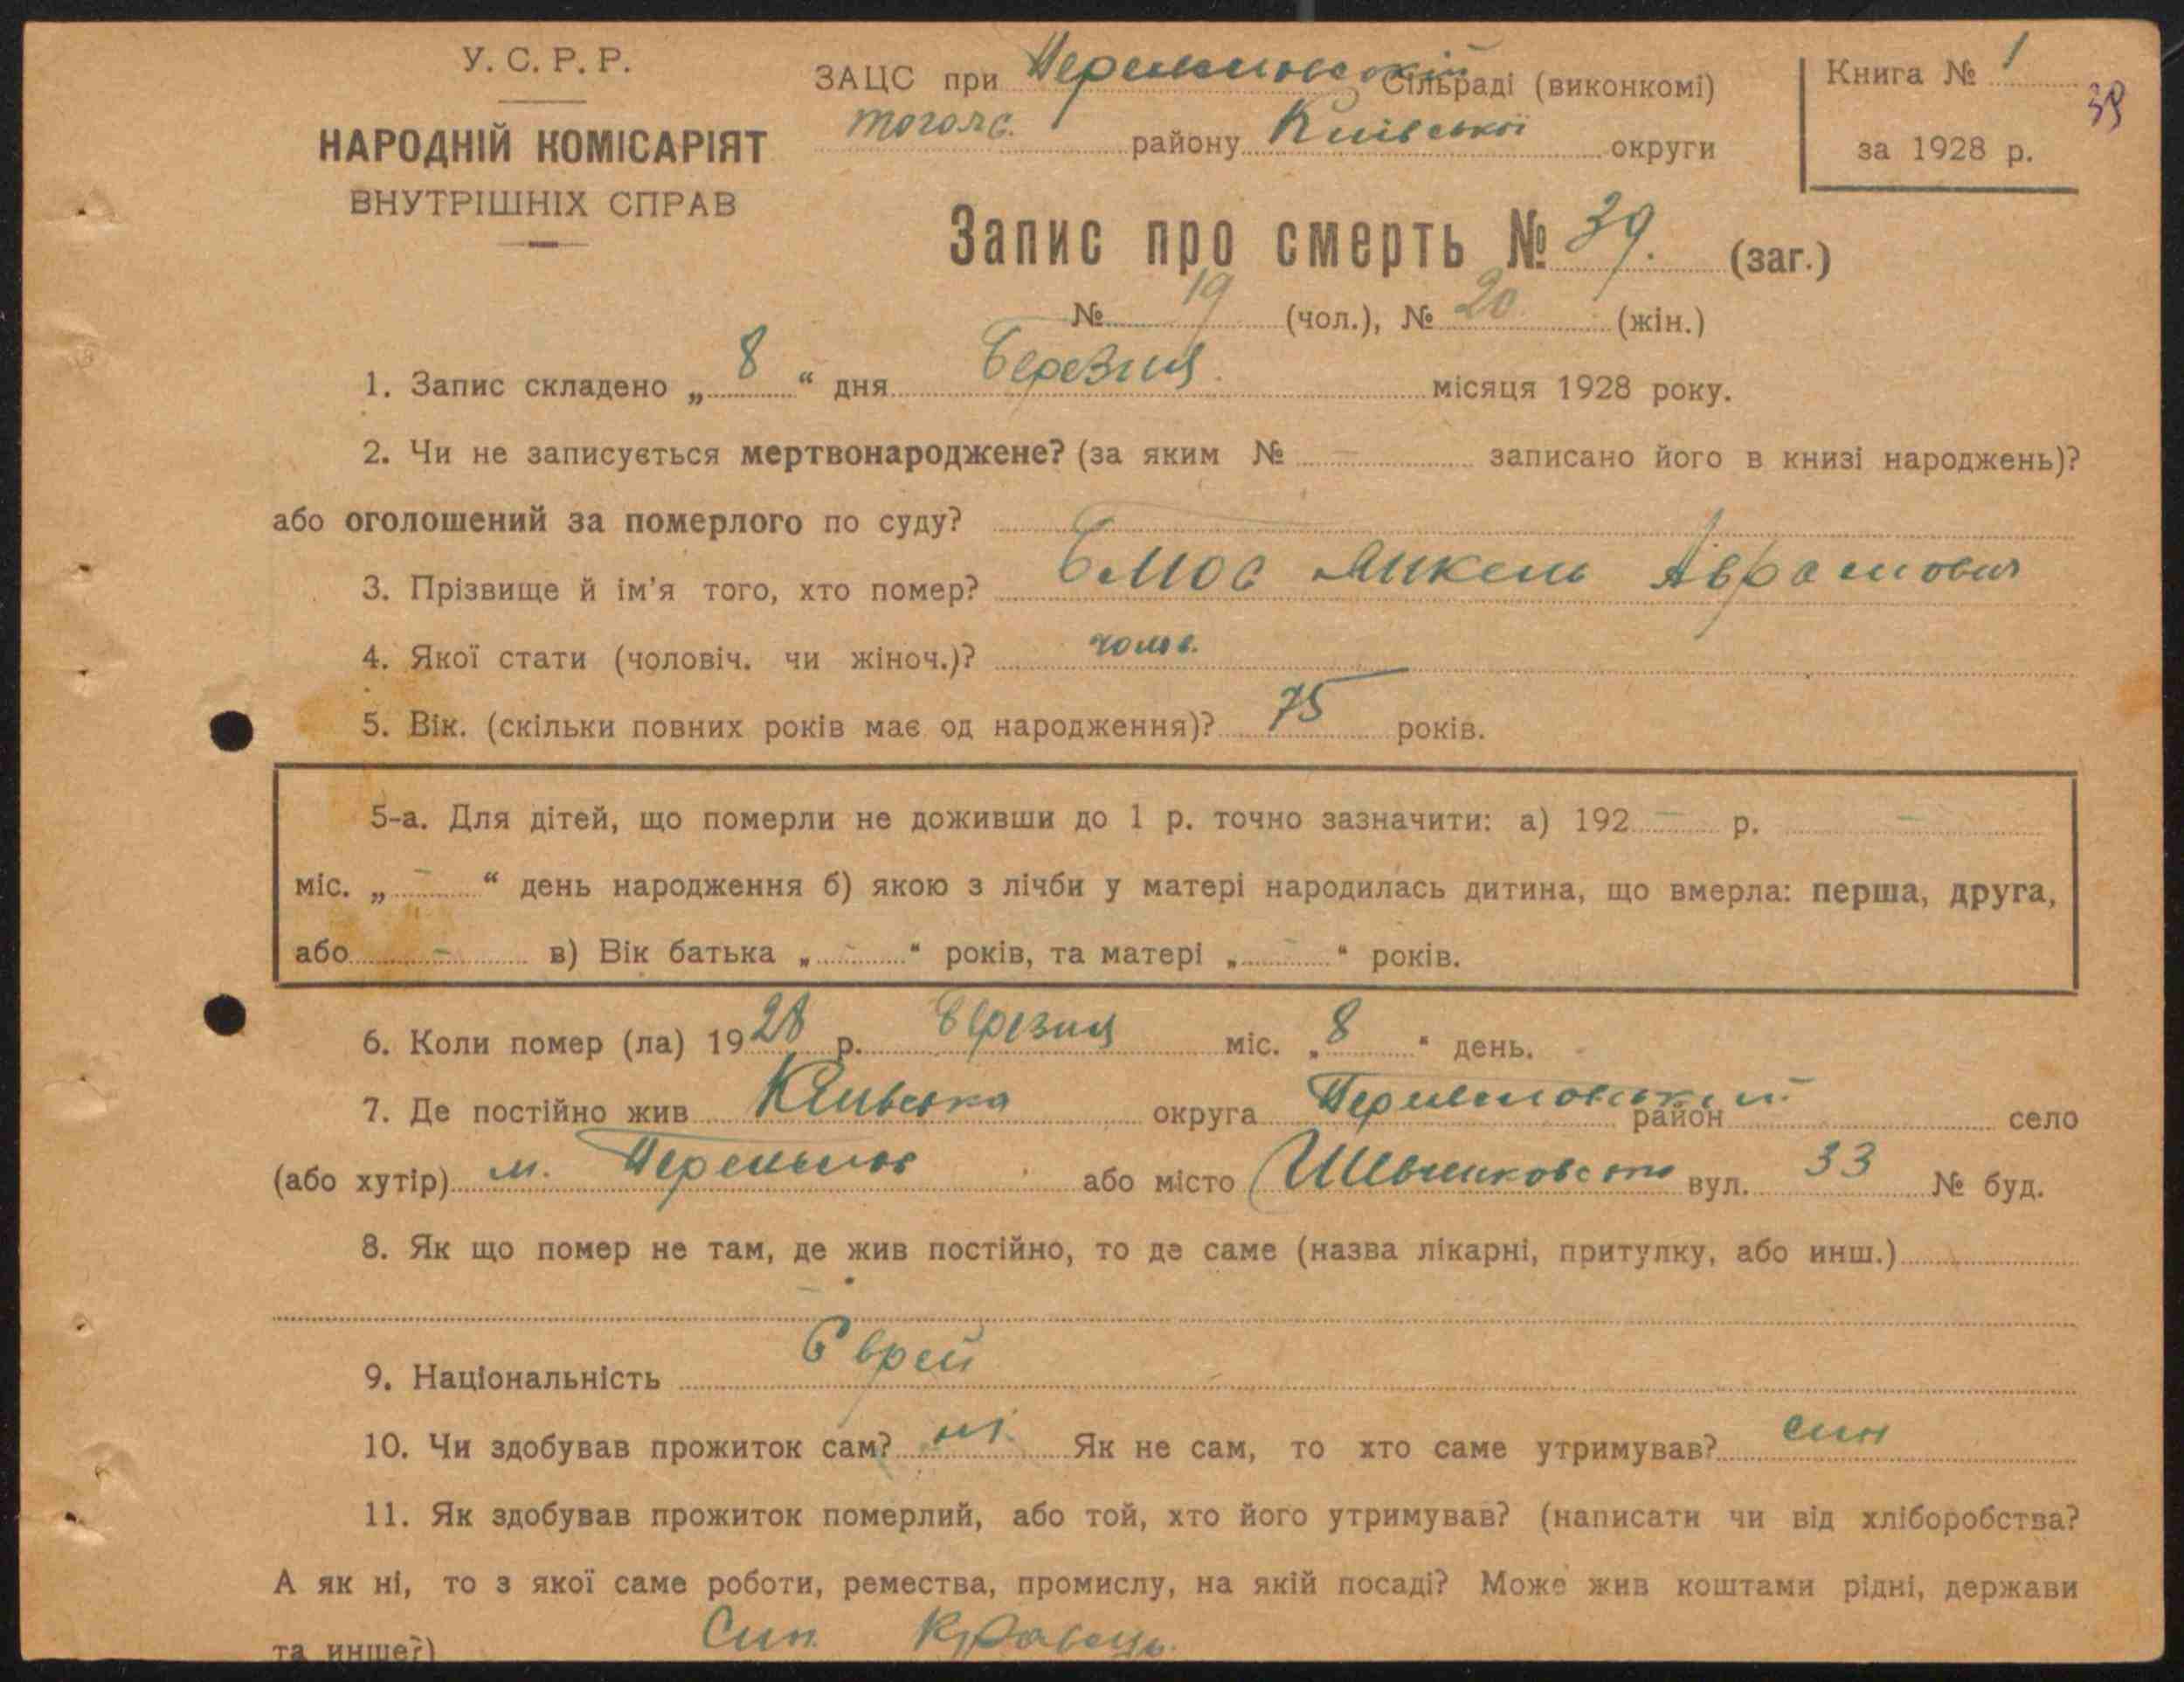 У. С. Р. Р.
НАРОДНІЙ КОМІСАРІЯТ
ВНУТРІШНІХ СПРАВ
ЗАЦС при Сільраді (виконкомі)
тогож. району Київської округи
Книга № 1
за 1928 р.
39
Запис про смерть № 39. (заг.)
№ 19 (чол.), № 20 (жін.)
1. Запис складено „ 8 “ дня Березня місяця 1928 року.
2. Чи не записується мертвонароджене? (за яким № – записано його в книзі народжень)?
або оголошений за померлого по суду?
3. Прізвище й ім'я того, хто помер? Аврамович
4. Якої стати (чоловіч. чи жіноч.)? чолов.
5. Вік. (скільки повних років має од народження)? 75 років.
5-а. Для дітей, що померли не доживши до 1 р. точно зазначити: а) 192 – р. –
міс. „ – “ день народження б) якою з лічби у матері народилась дитина, що вмерла: перша, друга,
або – в) Вік батька „ – “ років, та матері „ – “ років.
6. Коли помер (ла) 1928 р. Березня міс. „ 8 “ день.
7. Де постійно жив Київська округа район село
(або хутір) м. або місто вул. 33 № буд.
8. Як що помер не там, де жив постійно, то де саме (назва лікарні, притулку, або инш.)
–
9. Національність Єврей
10. Чи здобував прожиток сам? ні. Як не сам, то хто саме утримував? син
11. Як здобував прожиток померлий, або той, хто його утримував? (написати чи від хліборобства?
А як ні, то з якої саме роботи, ремества, промислу, на якій посаді? Може жив коштами рідні, держави
та инше?) Син Кравець.